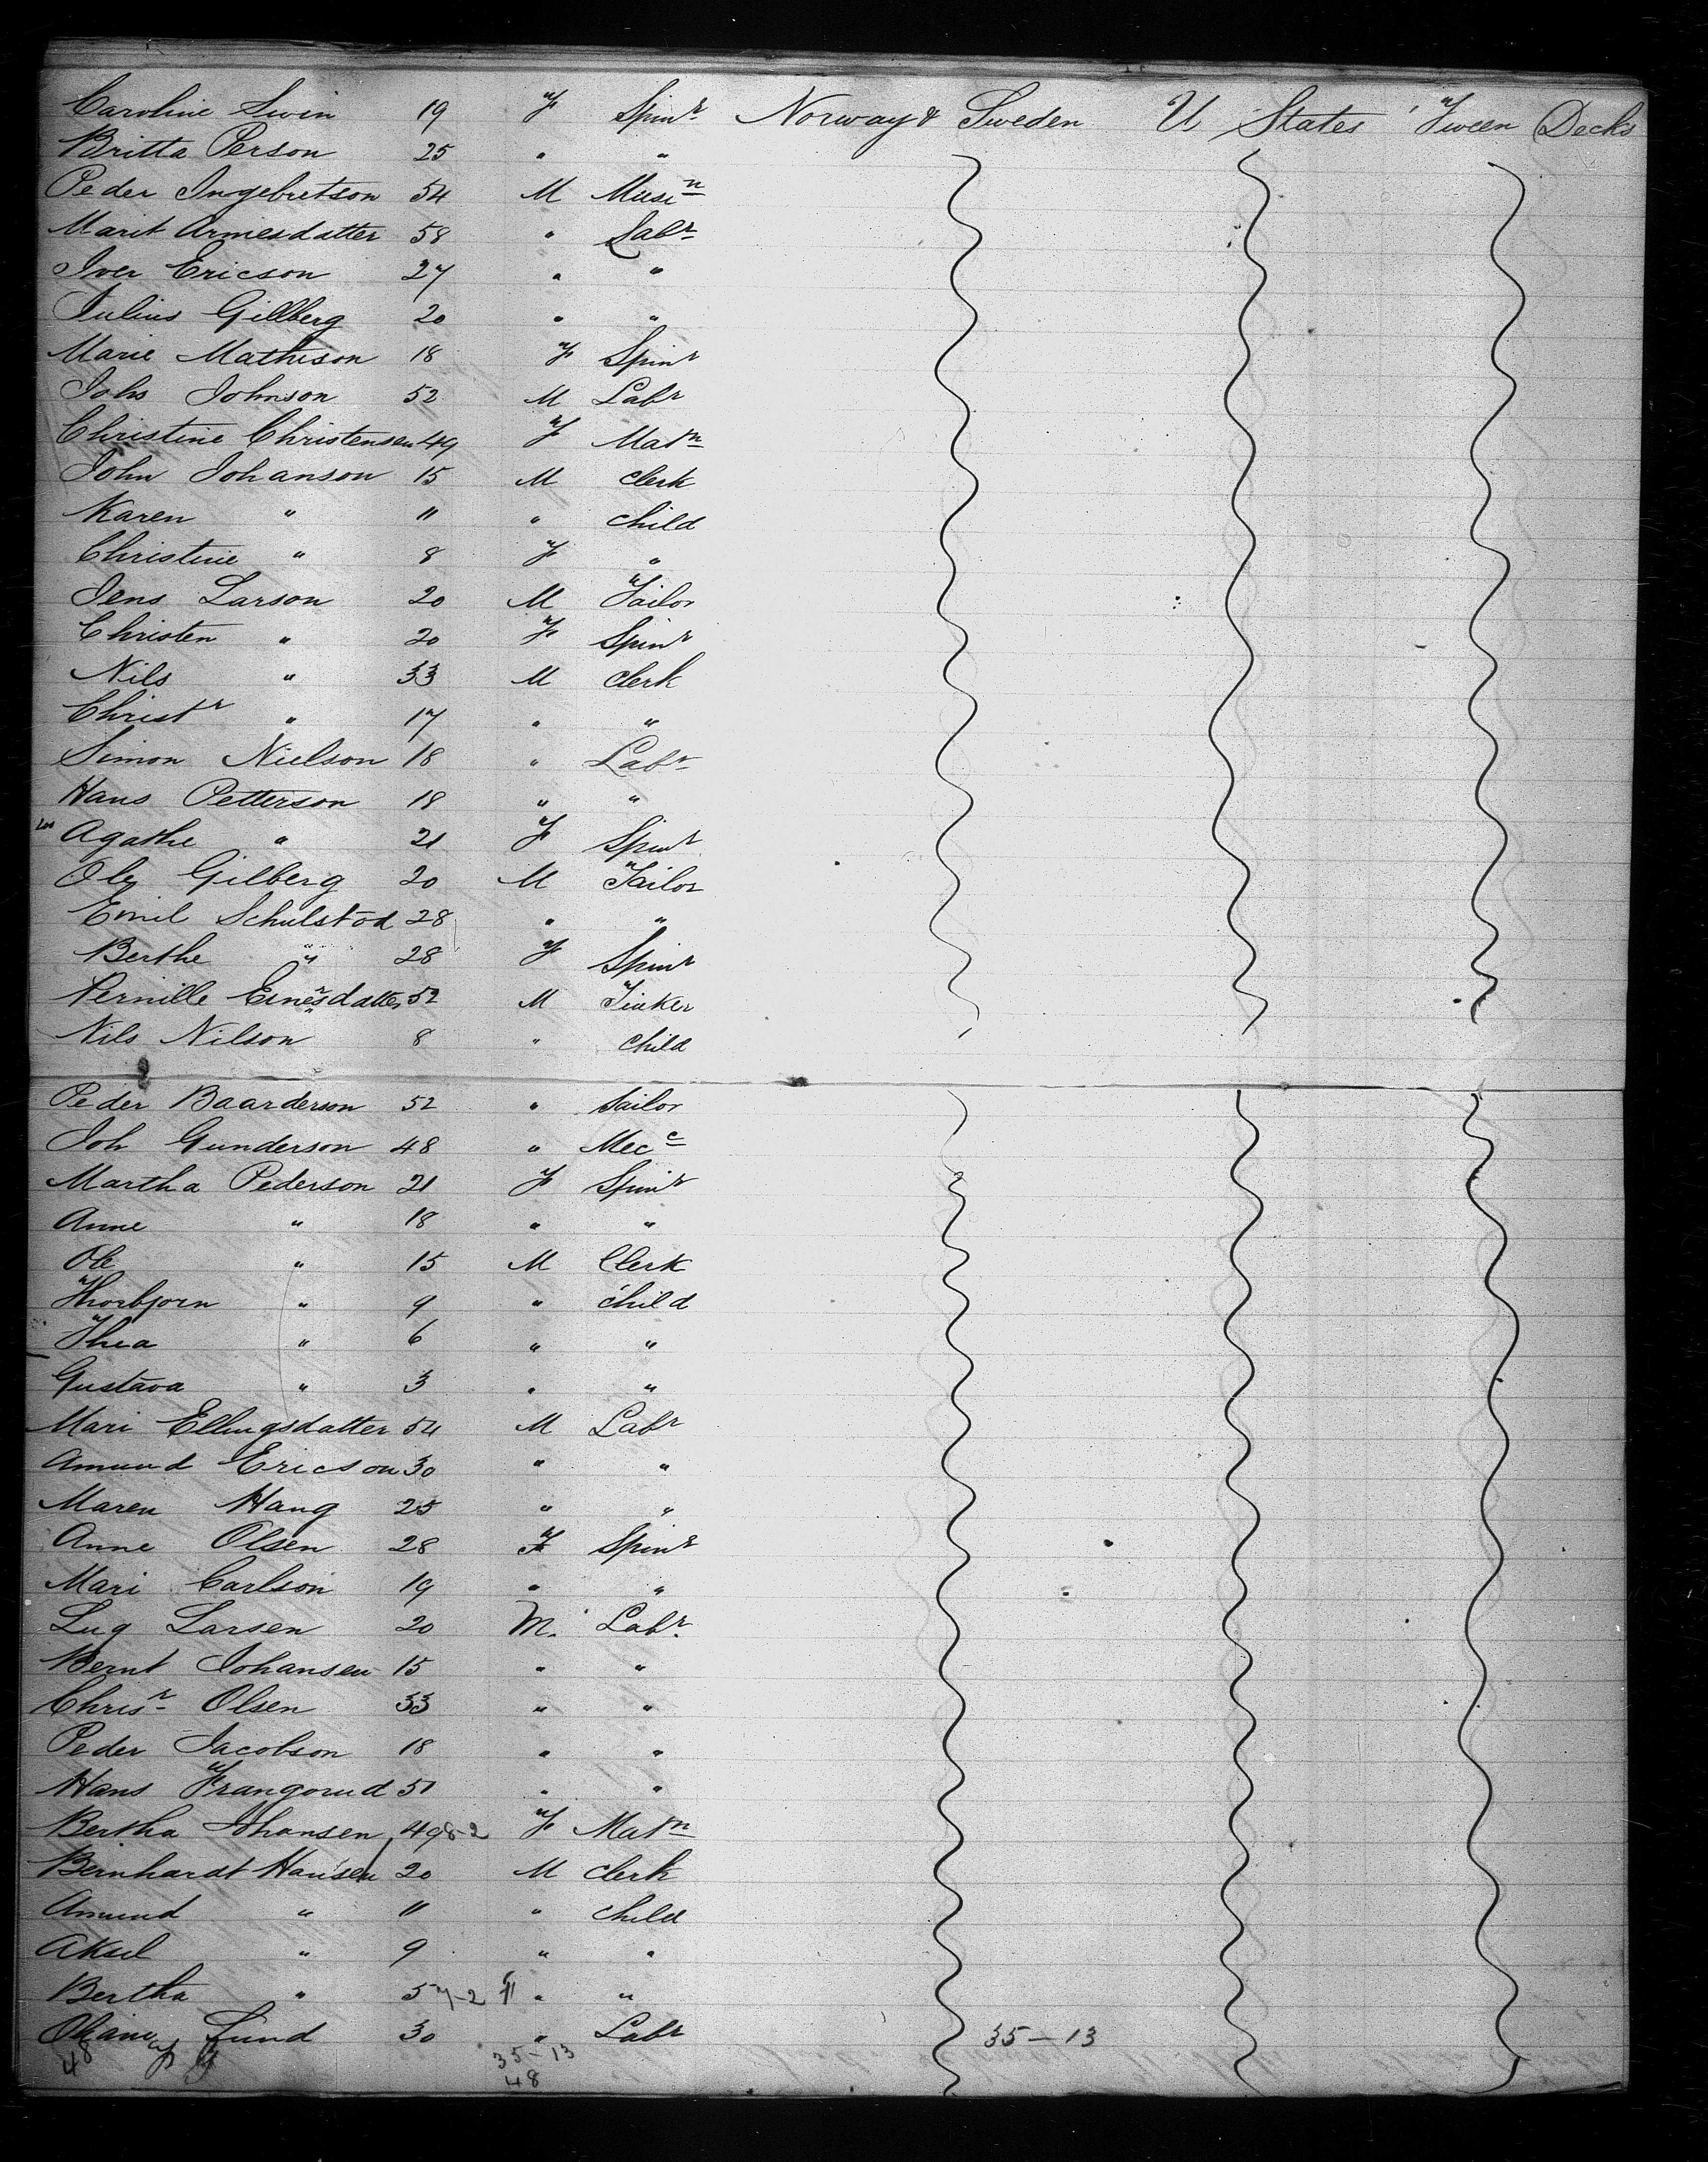 Caroline Swin 19 F Spinr Norway & Sweden U States Tween Decks
Britta Person 25 " "
Peder Ingebretson 54 M Musin
Marit Arnesdatter 58 " Labr
Iver Ericson 27 " "
Julius Gillberg 20 " "
Marie Mathison 18 F Spinr
Johs Johnson 52 M Labr
Christine Christensen 49 F Matn
John Johanson 15 M Clerk
Karen " 11 " Child
Christine " 8 F "
Jens Larson 20 M Tailor
Christen " 20 F Spinr
Nils " 33 M Clerk
Christr " 17 " "
Simon Nielson 18 " Labr
Hans Petterson 18 " "
Agathe " 21 F Spinr
Ole Gilberg 20 M Tailor
Emil Schulstod 28 " "
Berthe " 28 F Spinr
Pernille Ernesdatter 52 M Tinker
Nils Nilson 8 " Child
Peder Baarderson 52 " Sailor
Joh Gunderson 48 " Mecc
Martha Pederson 21 F Spinr
Anne " 18 " "
Ole " 15 M Clerk
Thorbjorn " 9 " Child
Thea " 6 " "
Gustava " 3 " "
Mari Ellingsdatter 54 M Labr
Amund Ericson 30 " "
Maren Haug 25 " "
Anne Olsen 28 F Spinr
Mari Carlson 19 " "
Lug Larsen 20 M. Labr.
Bernt Johansen 15 " "
Chrisr Olsen 33 " "
Peder Jacobson 18 " "
Hans Frangorud 51 " "
Bertha Johansen 49 8-2 F Matn
Bernhardt Hansen 20 M Clerk
Amund " 11 " Child
Aksel " 9 " "
Bertha " 5 7-2 11 " "
Lund 30 " Labr 35-13
48 35-13
48